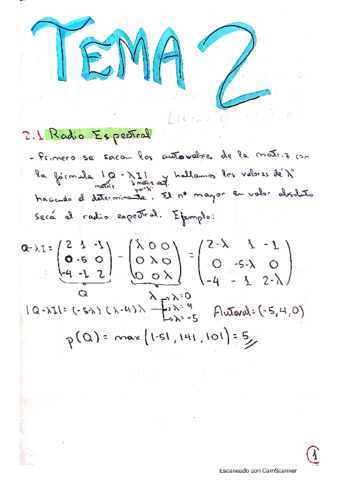 TEMA 2
2.1 Radio Espectral
- Primero se sacan los autovalores de la matriz con
la fórmula |Q-λI| y hallamos los valores de "λ"
matriz
haciendo el determinante. El nº mayor en valor absoluto
será el radio espectral. Ejemplo:
Q-λI = (2 1 -1 / 0 -5 0 / -4 -1 2) - (λ 0 0 / 0 λ 0 / 0 0 λ) = (2-λ 1 -1 / 0 -5-λ 0 / -4 -1 2-λ)
Q λ
|Q-λI| = (-5-λ)(λ-4)λ → λ=0 → λ=4 → λ=-5 Autoval = (-5,4,0)
ρ(Q) = max(|-5|, |4|, |0|) = 5
1
Escaneado con CamScanner